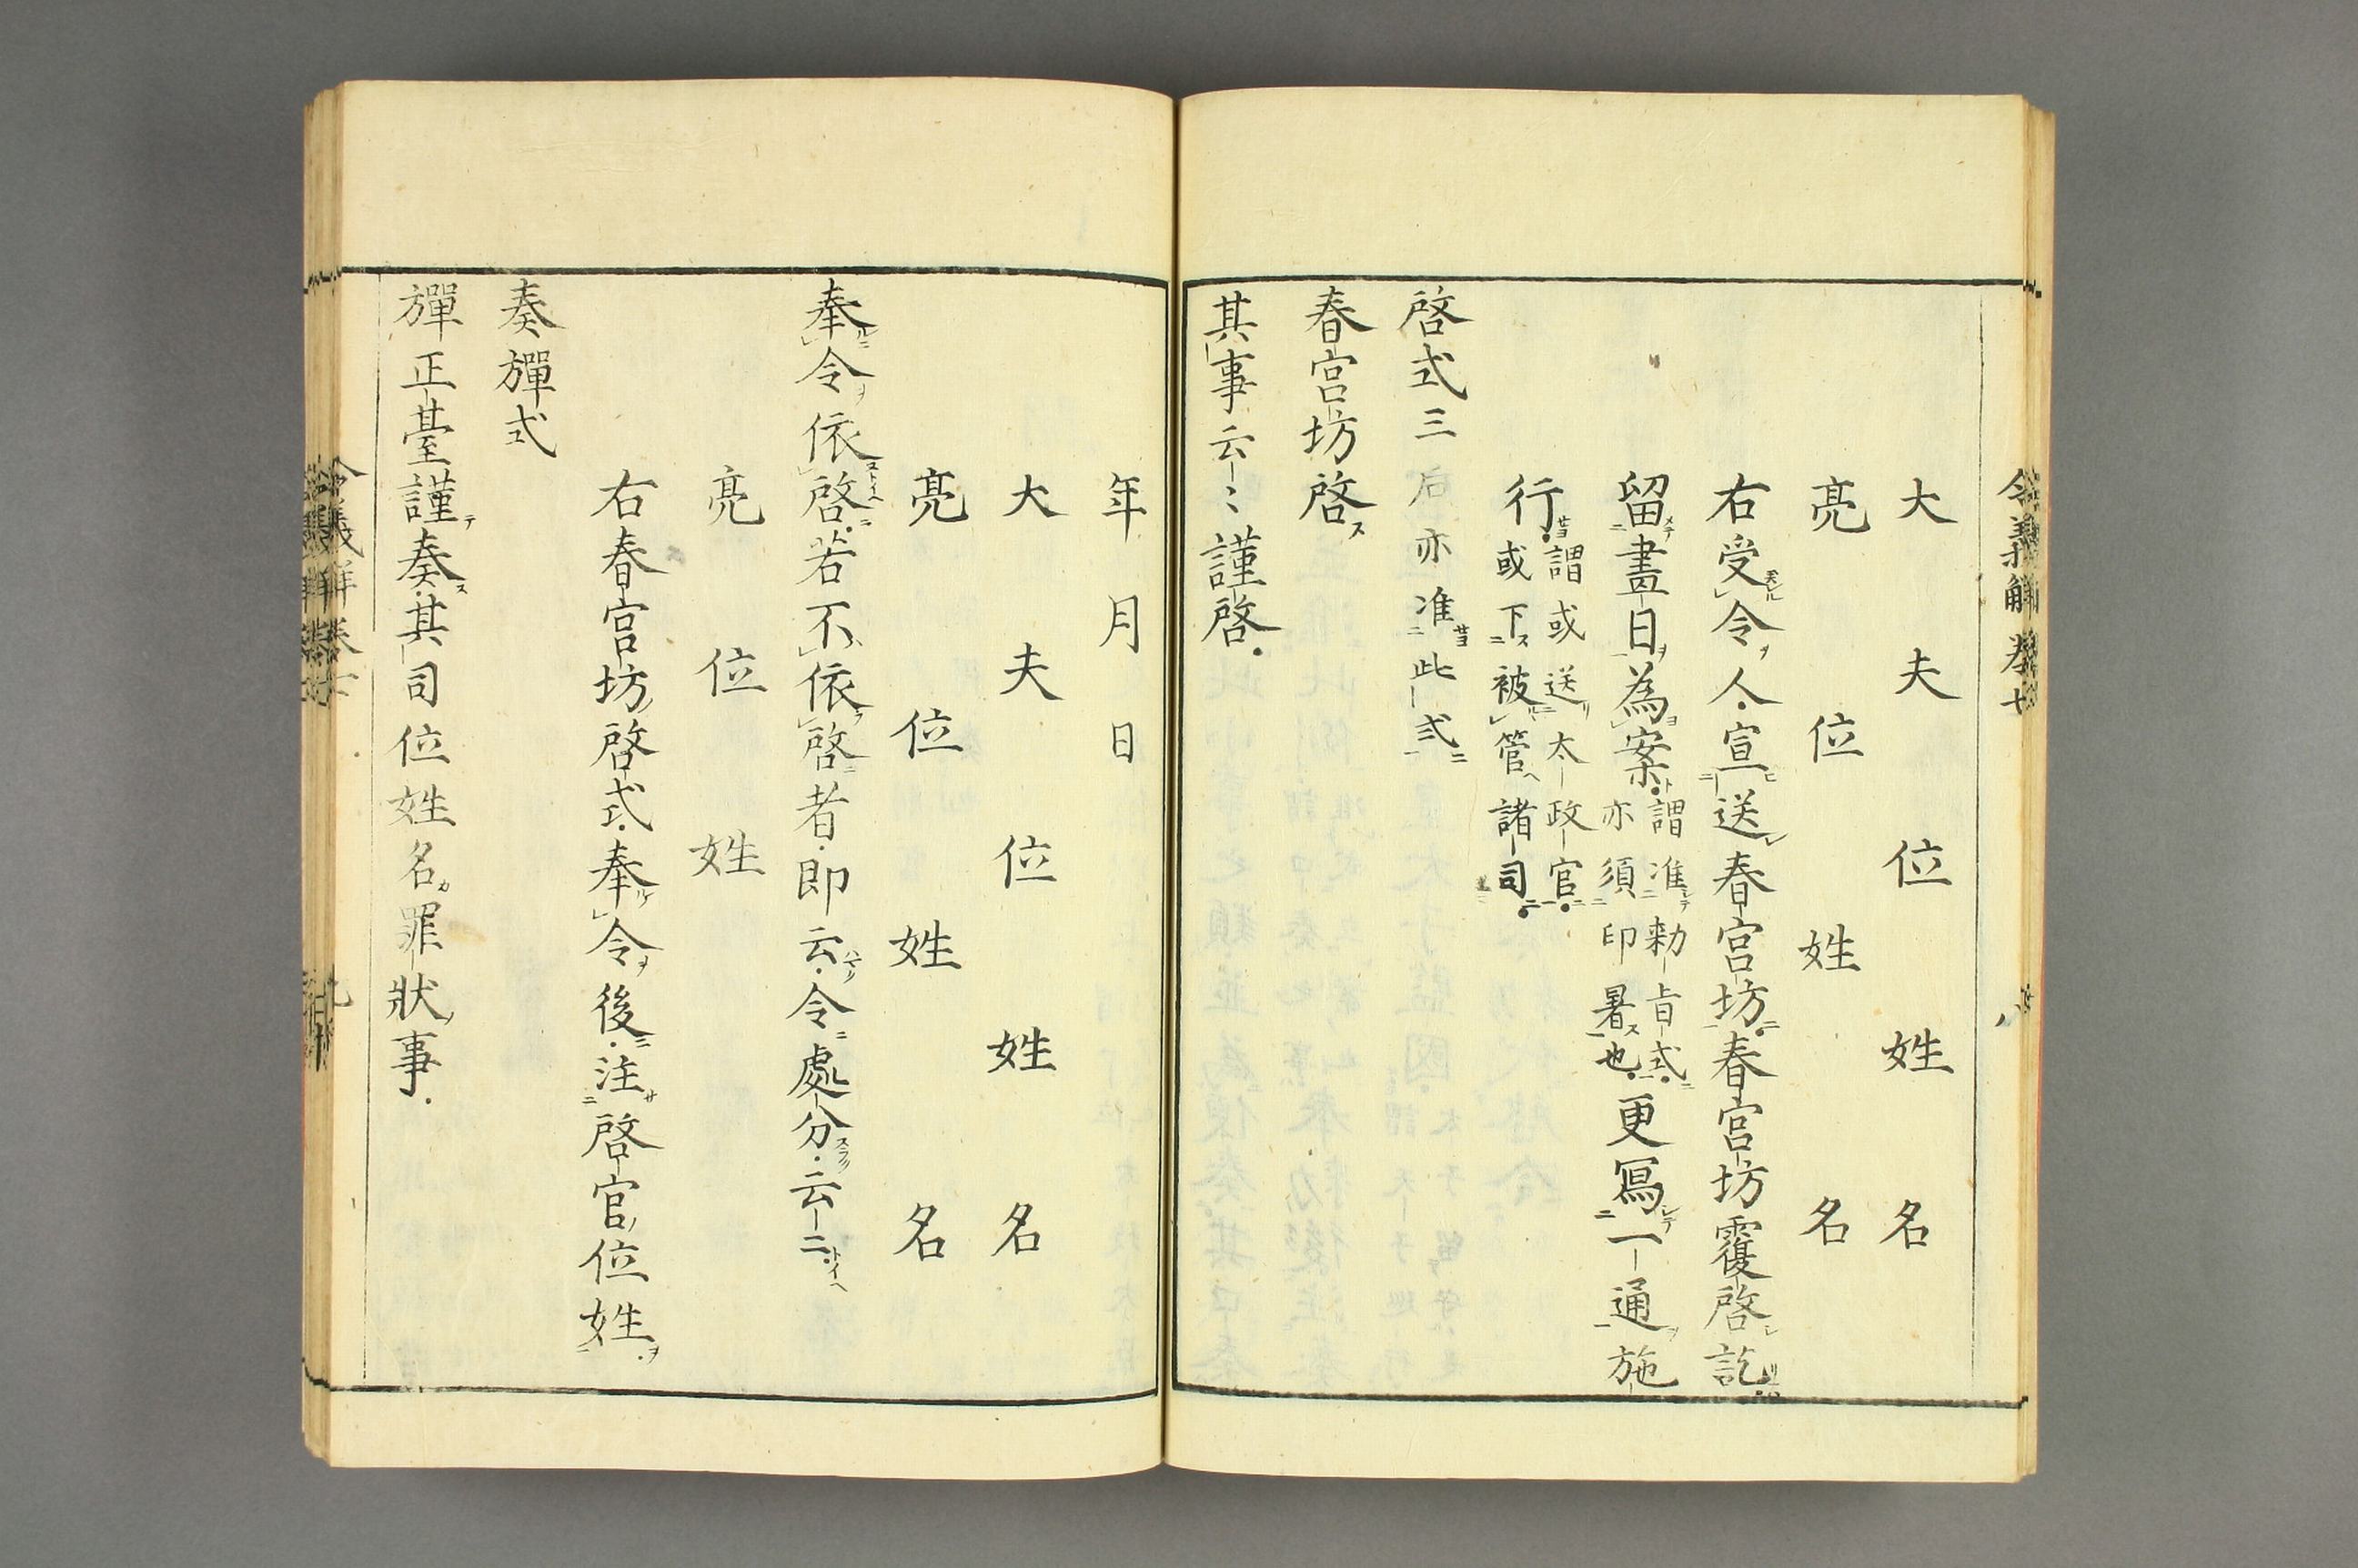 大夫位姓名
亮位姓名
右受令人宣送春宮坊春宮坊覆啓訖
留畫日為案謂准勅旨式亦須印署也更寫一通施
行謂或送太政官或下被管諸司
啓式三后亦准此式
春宮坊啓
其事云〻謹啓
年月日
大夫位姓名
亮位姓名
奉令依啓若不依啓者即云令處分云云
亮位姓
右春宮坊啓式奉令後注啓官位姓
奏彈式
彈正臺謹奏其司位姓名罪狀事